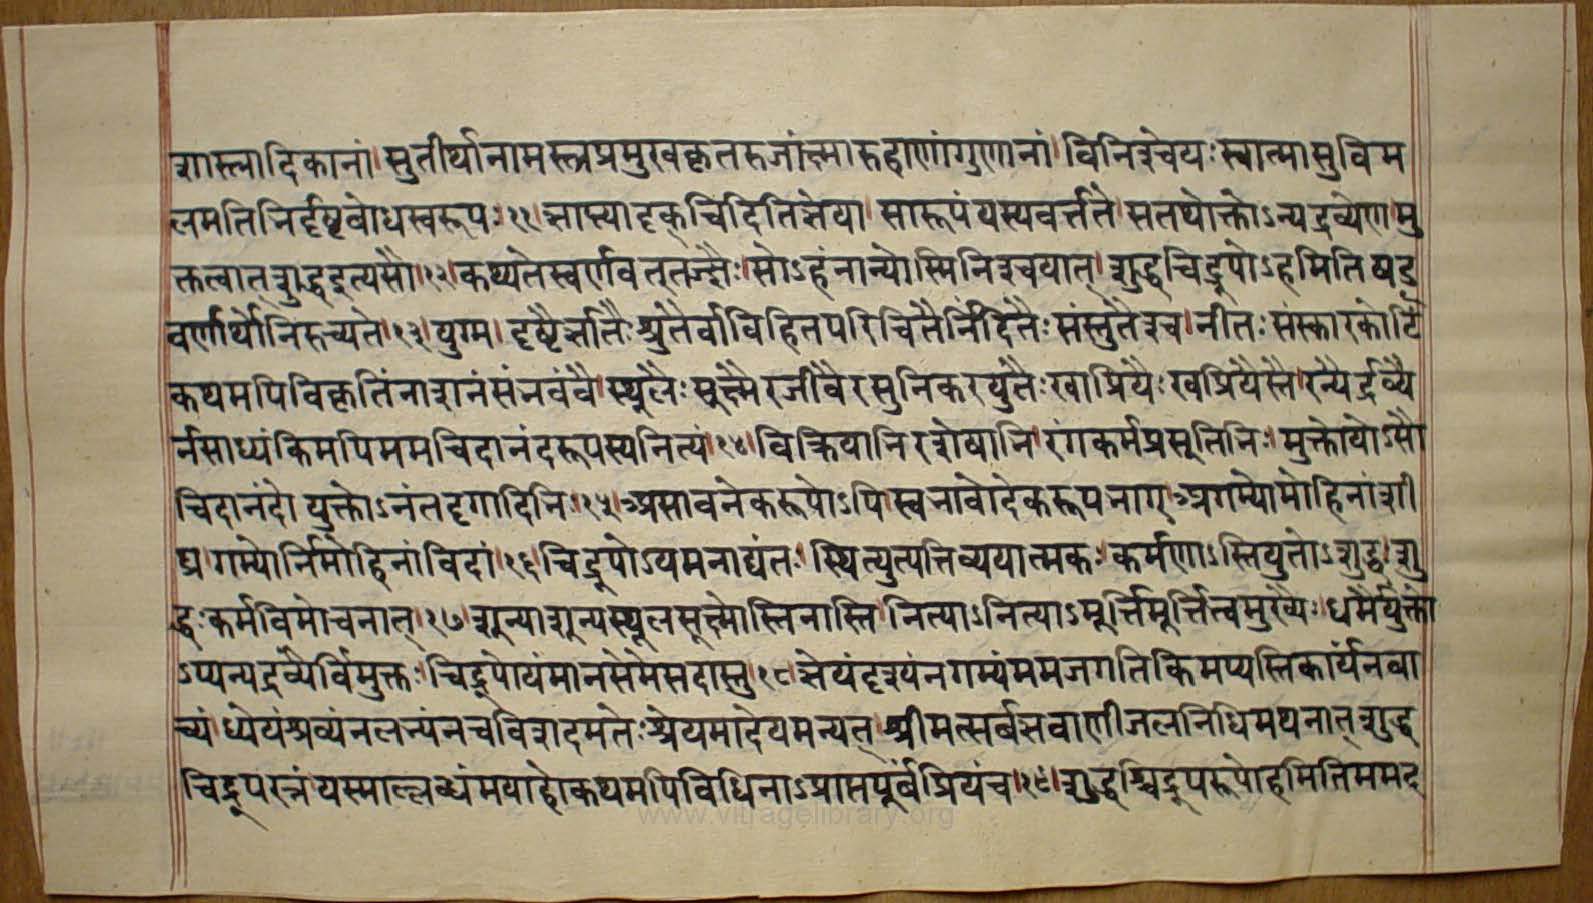 शास्त्रादिकानां।सुतीर्थानामस्त्रप्रमुखकृतरुजांक्ष्मारुहाणांगुणानां।विनिश्चेयःस्वात्मासुविम
लमतिनिर्दृष्टबोधस्वरूपः।११।ज्ञाप्त्यादृक्चिदितिज्ञेया।सारूपंयस्यवर्त्तते।सतथोक्तोऽन्यद्रव्येणमु
क्तत्वात्शुद्धइत्यसौ।१२।कथ्यतेस्वर्णवत्तज्ज्ञैः।सोऽहंनान्योस्मिनिश्चयात्।शुद्धचिद्रूपोऽहमितिषड्
वर्णार्थोनिरुच्यते।१३।युग्म।दृष्टैर्ज्ञातैःश्रुतैर्वाविहितपरिचितैर्निंदितैःसंस्तुतैश्च।नीतःसंस्कारकोटिं
कथमपिविकृतिंनाशनंसंभवंवै।स्थूलैःसूक्ष्मैरजीवैरसुनिकरयुतैःखाप्रियैःखप्रियैस्तै।रन्यैर्द्रव्यै
र्नसाध्यंकिमपिममचिदानंदरूपस्यनित्यं।१४।विक्रियाभिरशेषाभि।रंगकर्मप्रसूतिभिः।मुक्तोयोऽसौ
चिदानंदो।युक्तोऽनंतदृगादिभिः।१५।असावनेकरूपोऽपि।स्वभावादेकरूपभाग्।अगम्योमोहिनांशी
घ्र।गम्योर्निर्मोहिनांविदां।१६।चिद्रूपोऽयमनाद्यंतः।स्थित्युत्पत्तिव्ययात्मकः।कर्मणाऽस्तियुतोऽशुद्धः।शु
द्धःकर्मविमोचनात्।१७।शून्याशून्यस्थूलसूक्ष्मोस्तिनास्ति।नित्याऽनित्याऽमूर्त्तिमूर्त्तित्वमुख्यैः।धर्मैर्युक्तो
ऽप्यन्यद्रव्यैर्विमुक्तः।चिद्रूपोयंमानसेमेसदास्तु।१८।ज्ञेयंदृश्यंनगम्यंममजगतिकिमप्यस्तिकार्यंनवा
च्यं।ध्येयंश्रव्यंनलभ्यंनचविशदमतेःश्रेयमादेयमन्यत्।श्रीमत्सर्वज्ञवाणीजलनिधिमथनात्शुद्ध
चिद्रूपरत्नं।यस्माल्लब्धंमयाहोकथमपिविधिनाऽप्राप्तपूर्वंप्रियंच।१९।शुद्धश्चिद्रूपरूपोहमितिममद
www.vitragelibrary.org